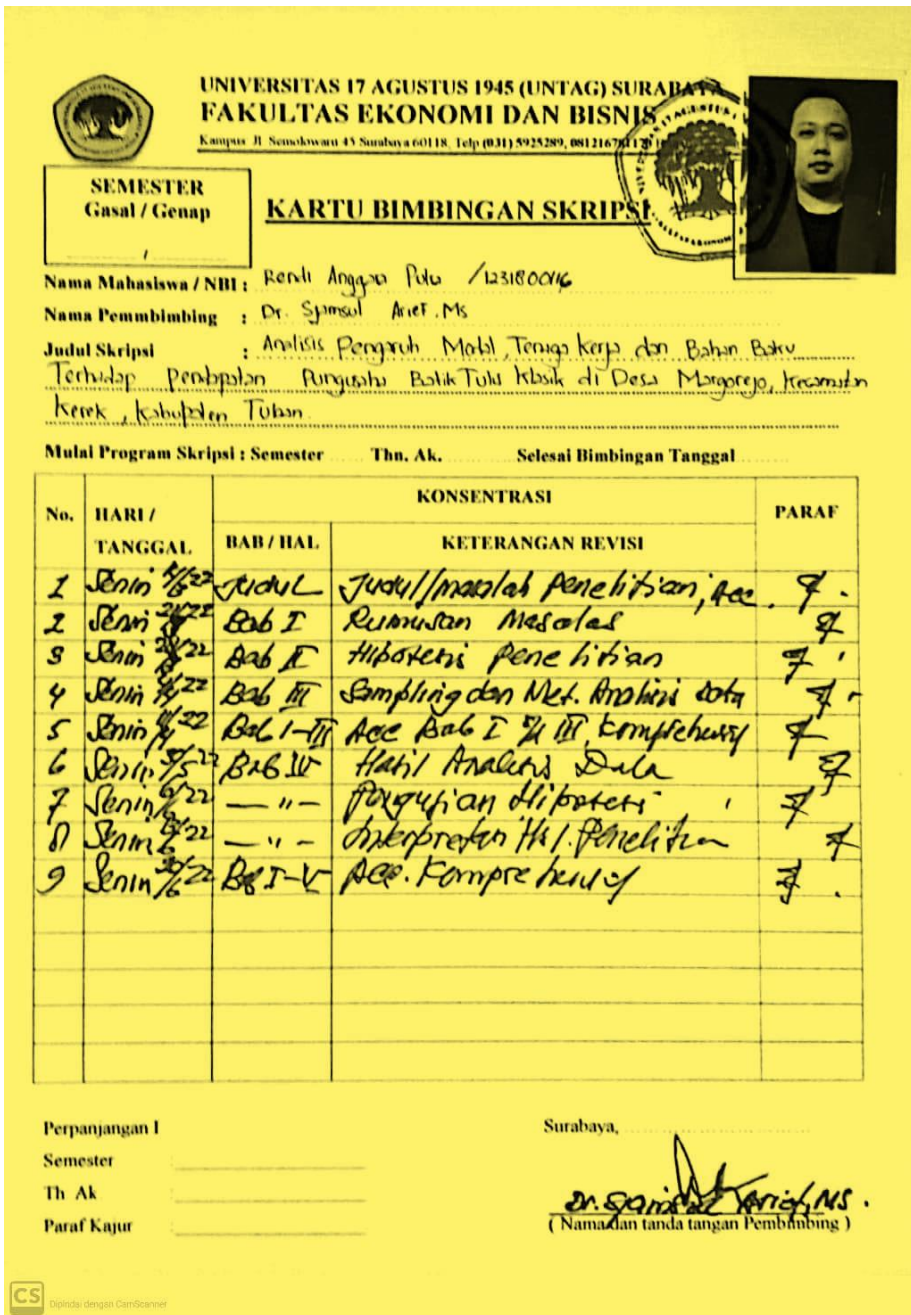 UNIVERSITAS 17 AGUSTUS 1945 (UNTAG) SURABAYA
FAKULTAS EKONOMI DAN BISNIS
Kampus Jl Semolowaru 45 Surabaya 60118, Telp (031) 5925289,
SEMESTER
Gasal / Genap
/
KARTU BIMBINGAN SKRIPSI
Nama Mahasiswa / NBI : Rendi Anggara Putu /1231800116
Nama Pemmbimbing : Dr. Sjamsul Arief. Ms
Judul Skripsi : Analisis Pengaruh Modal, Tenaga Kerja dan Bahan Baku
Terhadap Pendapatan Pengusaha Batik Tulis Klasik di Desa Margorejo, Kecamatan
Kerek, Kabupaten Tuban.
Mulai Program Skripsi : Semester Thn. Ak. Selesai Bimbingan Tanggal
No. HARI / TANGGAL KONSENTRASI PARAF
BAB / HAL KETERANGAN REVISI
1 Senin Judul Judul/masalah penelitian, Acc.
2 Senin Bab I Rumusan Masalas
3 Senin Bab II Hipotesis penelitian
4 Senin Bab III Sampling dan Met. Analisis Data
5 Senin Bab I-III Acc Bab I III, Komprehensif
6 Senin Bab IV Hasil Analisis Data
7 Senin — " — Pengujian Hipotesis
8 Senin — " — Hsl. Penelitian
9 Senin I-V Acc. Komprehensif
Perpanjangan I
Semester
Th Ak
Paraf Kajur
Surabaya,
Dr. Sjamsul Arief, MS.
( Nama dan tanda tangan Pembimbing )
CS Dipindai dengan CamScanner